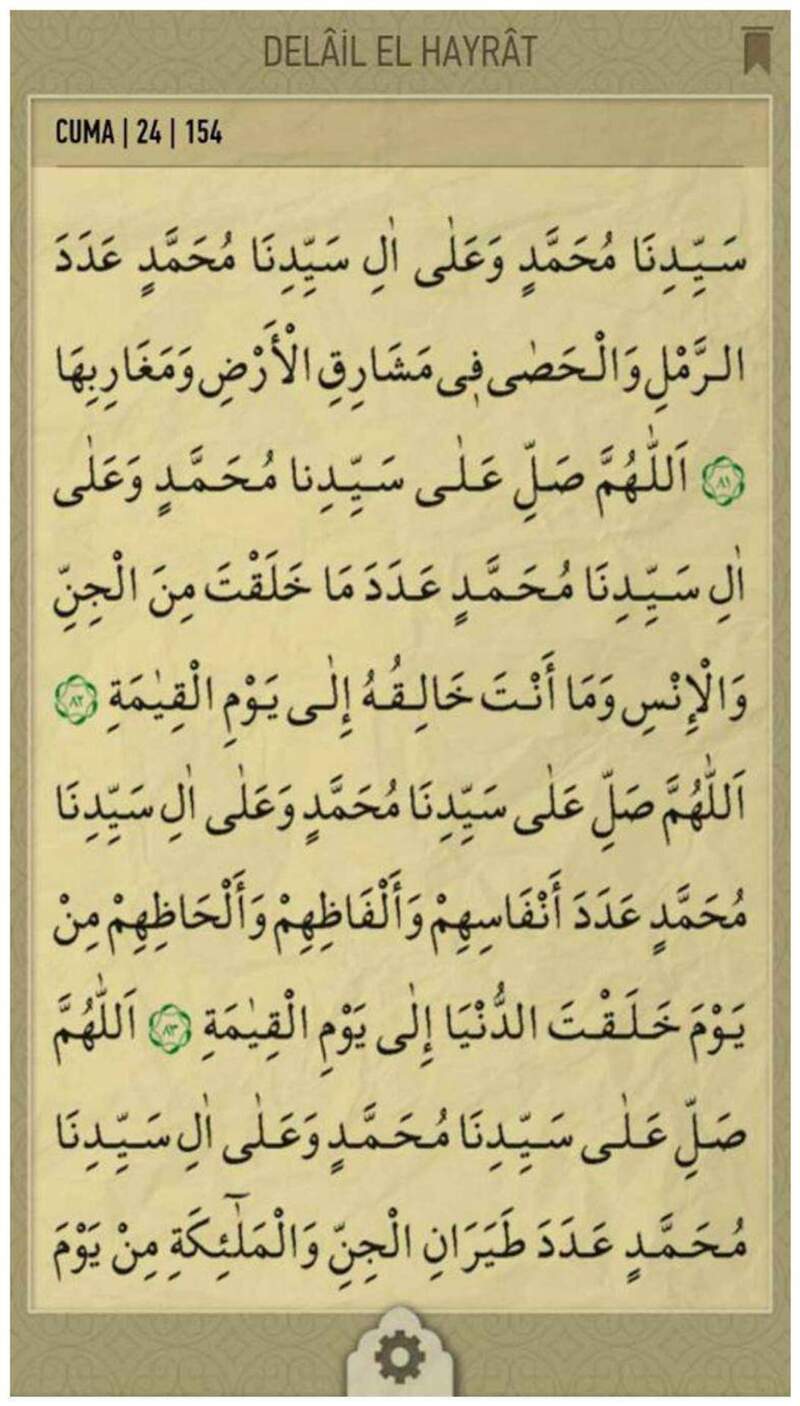 DELÂİL EL HAYRÂT
CUMA | 24 | 154
سَيِّدِنَا مُحَمَّدٍ وَعَلٰى اٰلِ سَيِّدِنَا مُحَمَّدٍ عَدَدَ
الرَّمْلِ وَالْحَصٰى فِى مَشَارِقِ الْأَرْضِ وَمَغَارِبِهَا
٨١ اَللّٰهُمَّ صَلِّ عَلٰى سَيِّدِنا مُحَمَّدٍ وَعَلٰى
اٰلِ سَيِّدِنَا مُحَمَّدٍ عَدَدَ مَا خَلَقْتَ مِنَ الْجِنِّ
وَالْإِنْسِ وَمَا أَنْتَ خَالِقُهُ إِلٰى يَوْمِ الْقِيٰمَةِ ٨٢
اَللّٰهُمَّ صَلِّ عَلٰى سَيِّدِنَا مُحَمَّدٍ وَعَلٰى اٰلِ سَيِّدِنَا
مُحَمَّدٍ عَدَدَ أَنْفَاسِهِمْ وَأَلْفَاظِهِمْ وَأَلْحَاظِهِمْ مِنْ
يَوْمَ خَلَقْتَ الدُّنْيَا إِلٰى يَوْمِ الْقِيٰمَةِ ٨٣ اَللّٰهُمَّ
صَلِّ عَلٰى سَيِّدِنَا مُحَمَّدٍ وَعَلٰى اٰلِ سَيِّدِنَا
مُحَمَّدٍ عَدَدَ طَيَرَانِ الْجِنِّ وَالْمَلٰٓئِكَةِ مِنْ يَوْمَ